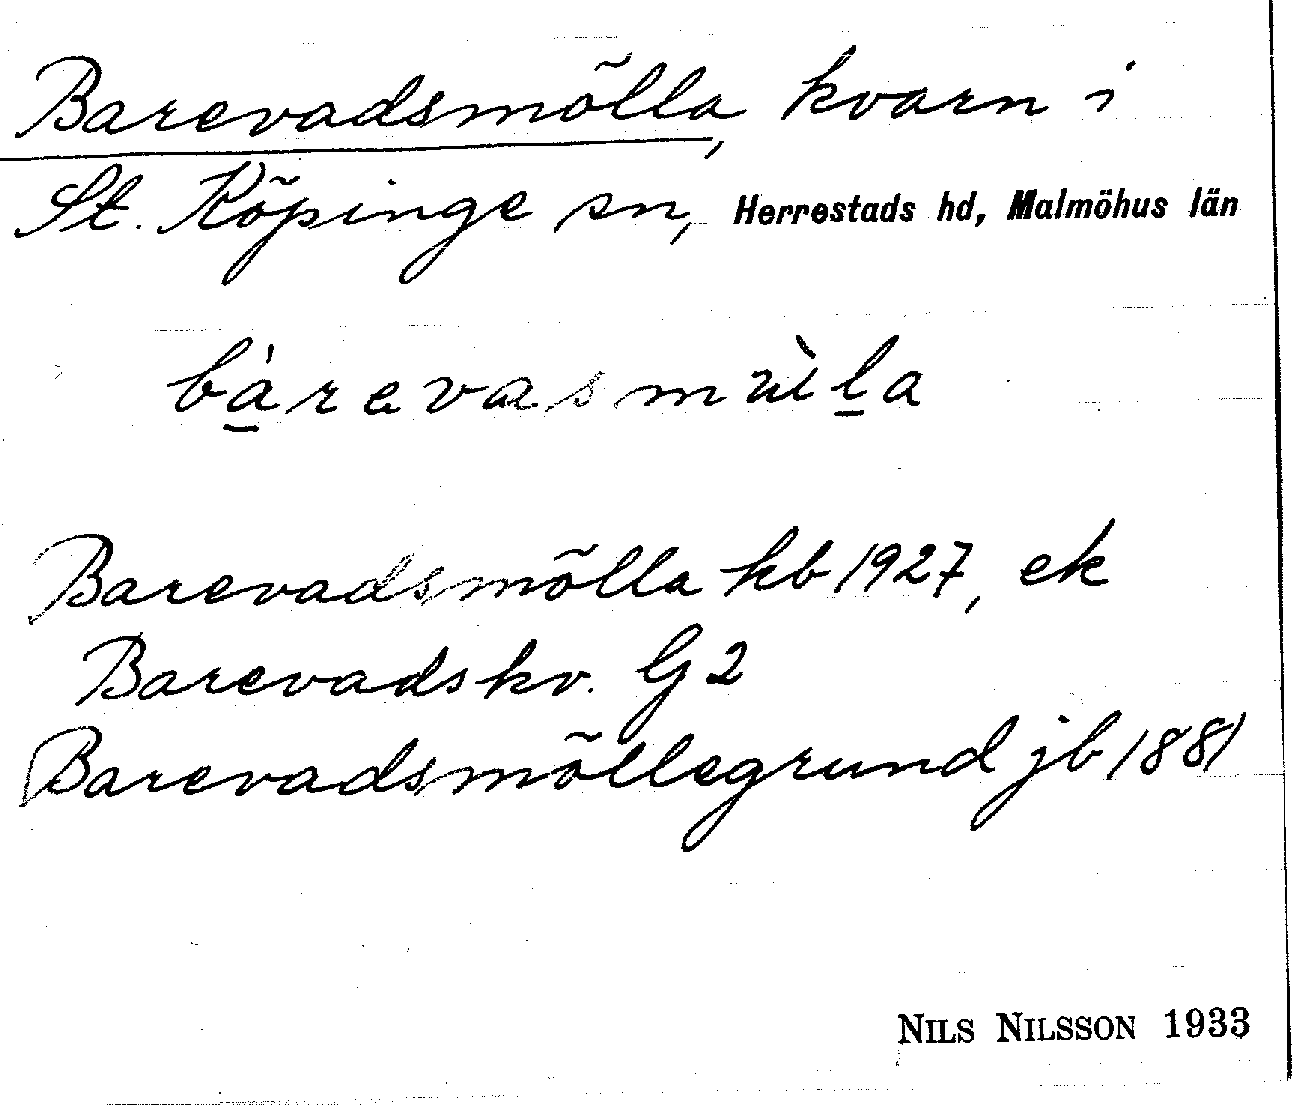 Barevadsmölla, kvarn i
St. Köpinge sn, Herrestads hd, Malmöhus län
Barevadsmölla kb 1927, ek
Barevadskv. G2
Barevadsmöllegrund jb 1881
NILS NILSSON 1933